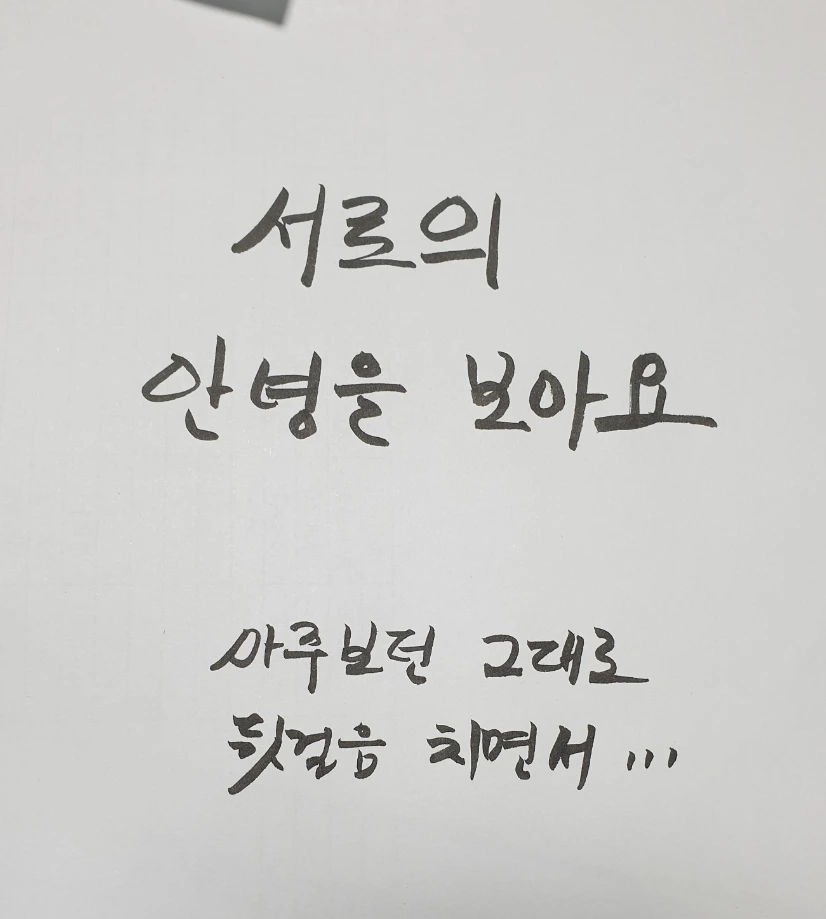 서로의
안녕을 보아요
마주보던 그대로
뒷걸음 치면서...